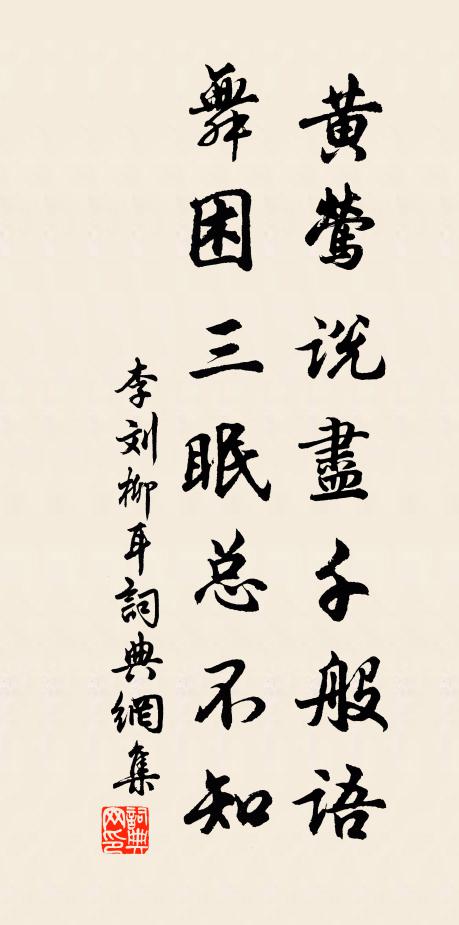 黄莺说盡千般語
舞困三眠总不知
李刘柳耳詞典網集
詞典网印